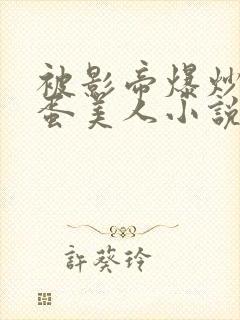 被影帝爆炒
蛋美人小說
許葵玲